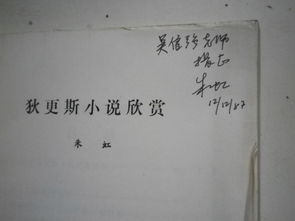 吴信强老师
指正
朱虹
12/12/87
狄更斯小说欣赏
朱 虹